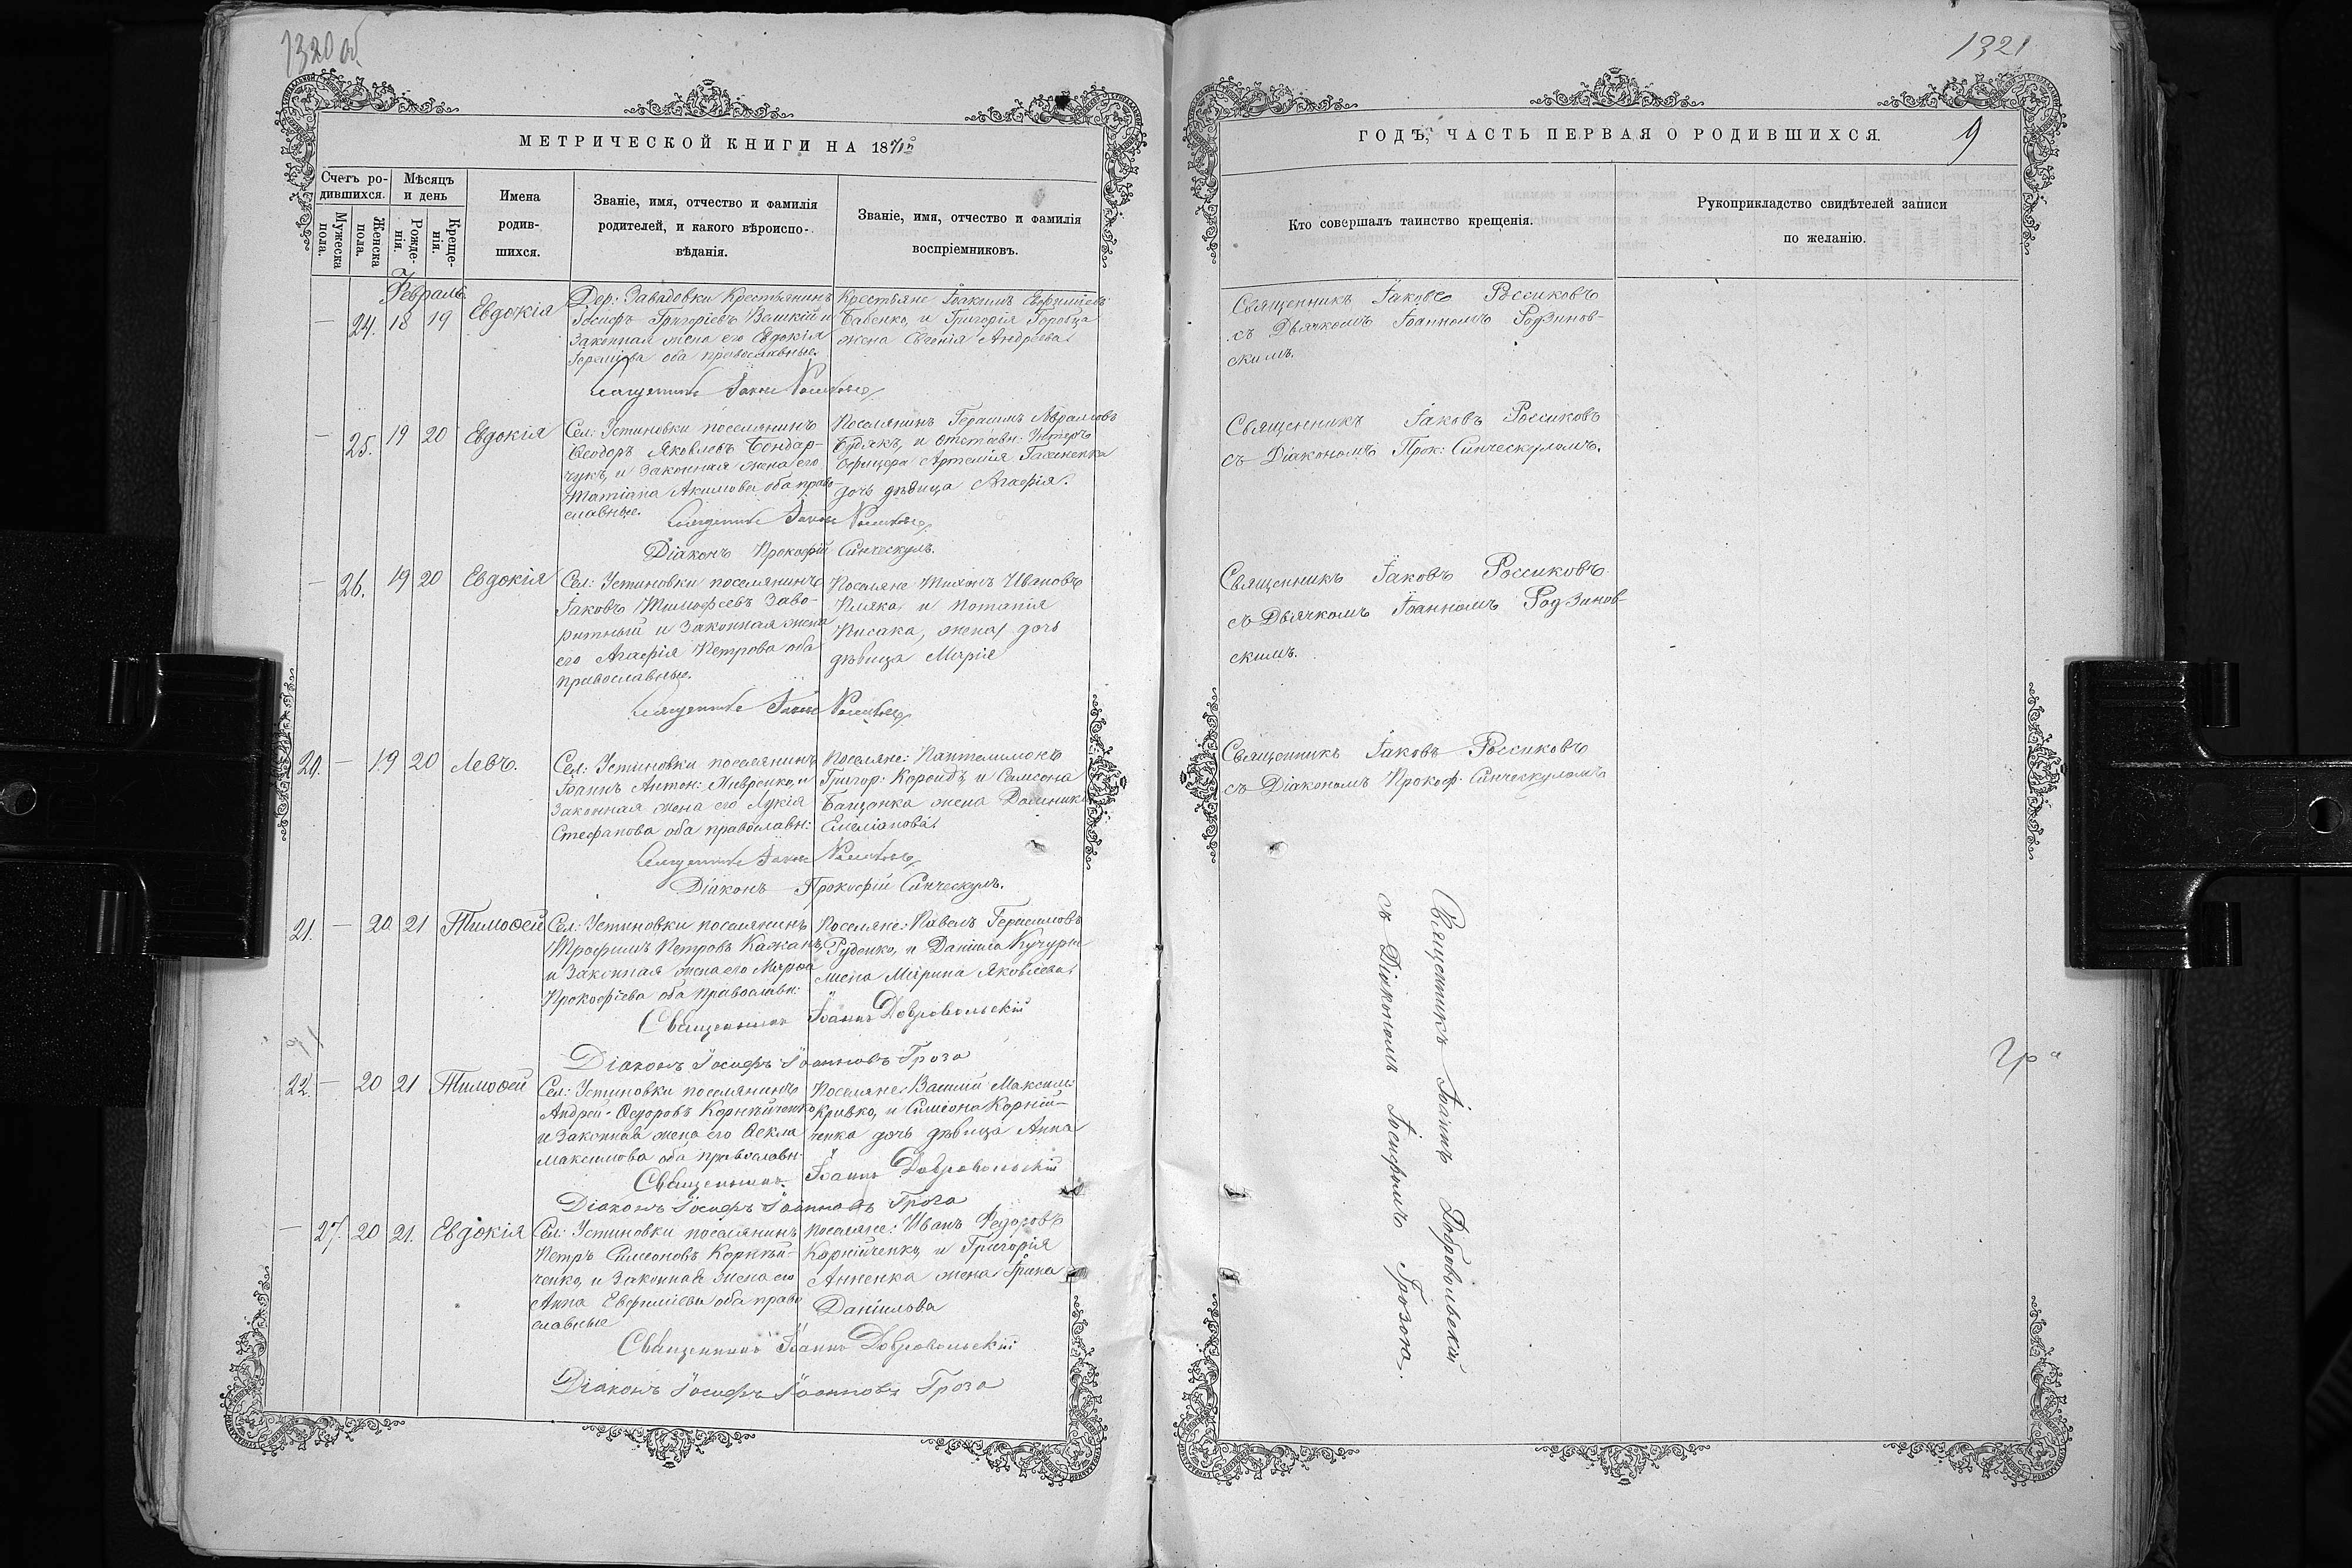 1320 об
МЕТРИЧЕСКОЙ КНИГИ НА 1871й
Счетъ ро-
дившихся.
Мужеска
пола.
Женска
пола.
Мѣсяцъ
и день
Рожде-
нія.
Креще-
нія.
Имена
родив-
шихся.
Званіе, имя, отчество и фамилія
родителей, и какого вѣроиспо-
вѣданія.
Званіе, имя, отчество и фамилія
воспріемниковъ.
Февраль.
— 24. 18 19 Евдокія
Дер: Завадовки Крестьянинъ
Іосифъ Григоріевъ и
законная жена его Евдокія
оба православные.
Крестьяне Іоакимъ
Бабенко, и Григорія Горобца
жена Евгенія Андреева.
Священникъ Іаковъ Россиковъ
— 25. 19 20 Евдокія
Сел: Устиновки поселянинъ
Ѳеодоръ Яковлевъ Бондар-
чукъ, и законная жена его
Татіана Акимова оба право-
славные.
Поселянинъ Герасимъ Аврамовъ
и отставн: Унтеръ
Офицера Артемія
дочь дѣвица Агафія.
Священникъ Іаковъ Россиковъ
Діаконъ Прокофій Синческулъ.
— 26. 19 20 Евдокія
Сел: Устиновки поселянинъ
Іаковъ Тимофеевъ Заво-
ритный и законная жена
его Агафія Петрова оба
православные.
Поселяне Тихонъ Ивановъ
и Потапія
Писака, жена дочь
дѣвица Марія
Священникъ Іаковъ Россиковъ
20. — 19 20 Левъ.
Сел: Устиновки поселянинъ
Іоаннъ Антон: и
законная жена его Лукія
Стефанова оба православн:
Поселяне: Пантелимонъ
Григор: и Самсона
жена
Емеліанова.
Священникъ Іаковъ Россиковъ
Діаконъ Прокофій Синческулъ.
21. — 20 21 Тимоѳей
Сел: Устиновки поселянинъ
Трофимъ Петровъ Кажанъ,
и законная жена его Марѳа
Прокофіева оба православн:
Поселяне: Павелъ Герасимовъ
Руденко, и Даніила Кучуры
жена Марина Яковлева.
Священникъ Іоаннъ Добровольскій
Діаконъ Іосифъ Іоанновъ Гроза
22. — 20 21 Тимоѳей
Сел: Устиновки поселянинъ
Андрей Ѳедоровъ Корнѣйченко
и законная жена его Ѳекла
Максимова оба православн:
Поселяне: Василій Максим:
Кривко, и Симеона Корній-
ченка дочь дѣвица Анна
Священникъ Іоаннъ Добровольскій
Діаконъ Іосифъ Іоанновъ Гроза
— 27. 20 21. Евдокія
Сел: Устиновки поселянинъ
Петръ Симеоновъ Корнѣй-
ченко, и законная жена его
Анна Евфиміева оба право
славные
Поселяне: Иванъ Федоровъ
Корнійченко, и Григорія
Анненка жена Ірина
Даніилова
Священникъ Іоаннъ Добровольскій
Діаконъ Іосифъ Іоанновъ Гроза
1321
ГОДЪ, ЧАСТЬ ПЕРВАЯ О РОДИВШИХСЯ.
9
Кто совершалъ таинство крещенія.
Рукоприкладство свидѣтелей записи
по желанію.
Священникъ Іаковъ Россиковъ
съ Дьячкомъ Іоанномъ Родзинов-
скимъ.
Священникъ Іаковъ Россиковъ
съ Діакономъ Прок: Синческуломъ.
Священникъ Іаковъ Россиковъ
съ Дьячкомъ Іоанномъ Родзинов-
скимъ.
Священникъ Іаковъ Россиковъ
съ Діакономъ Прокоф: Синческуломъ
Священникъ Іоаннъ Добровольскій
съ Діакономъ Іосифомъ Грозою.